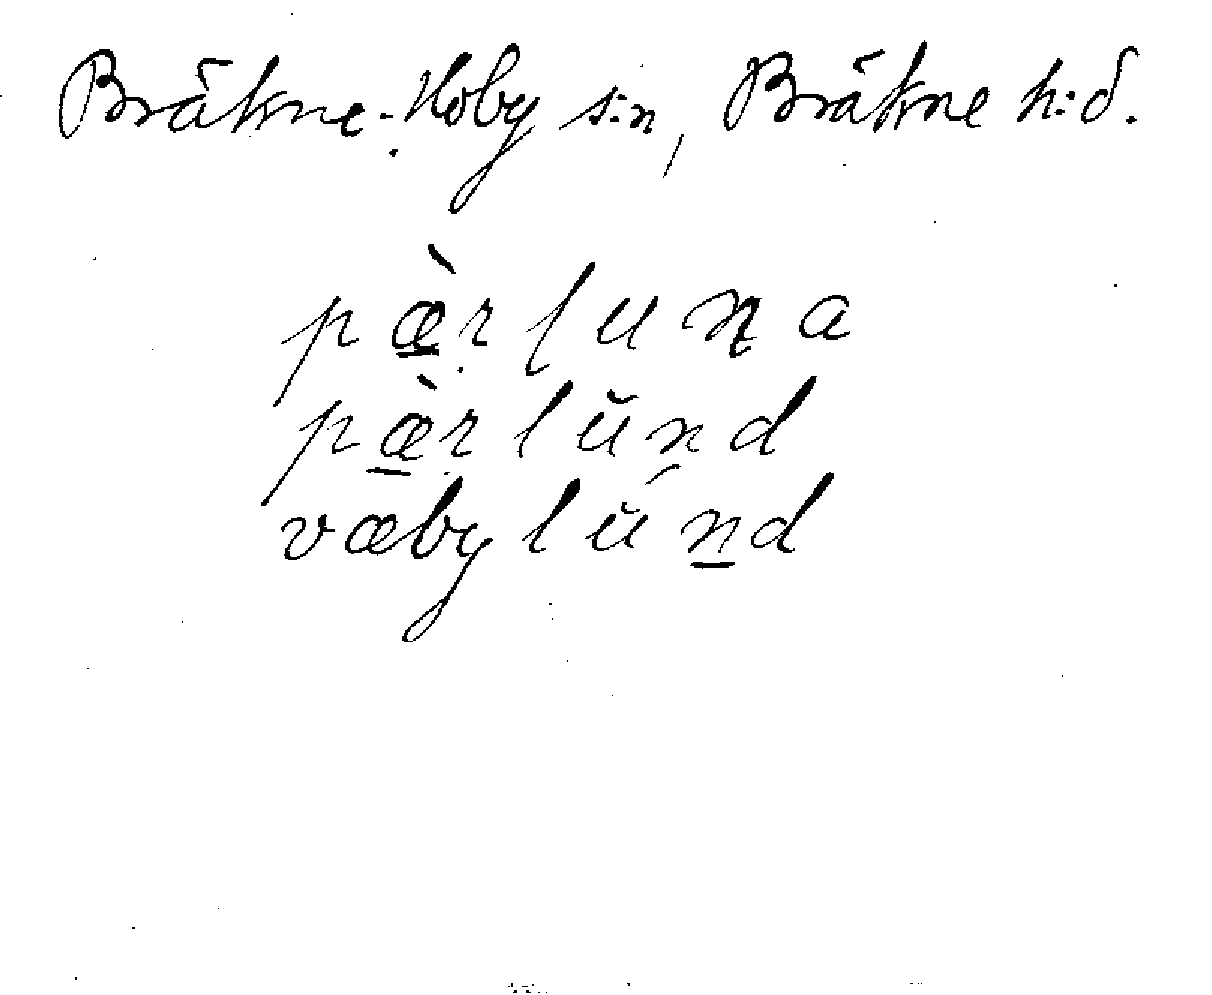 Bräkne-Hoby s:n, Bräkne h:d.
pæ̱̀rluṉa
pæ̱̀rlŭnd
væbylŭ́ṉd